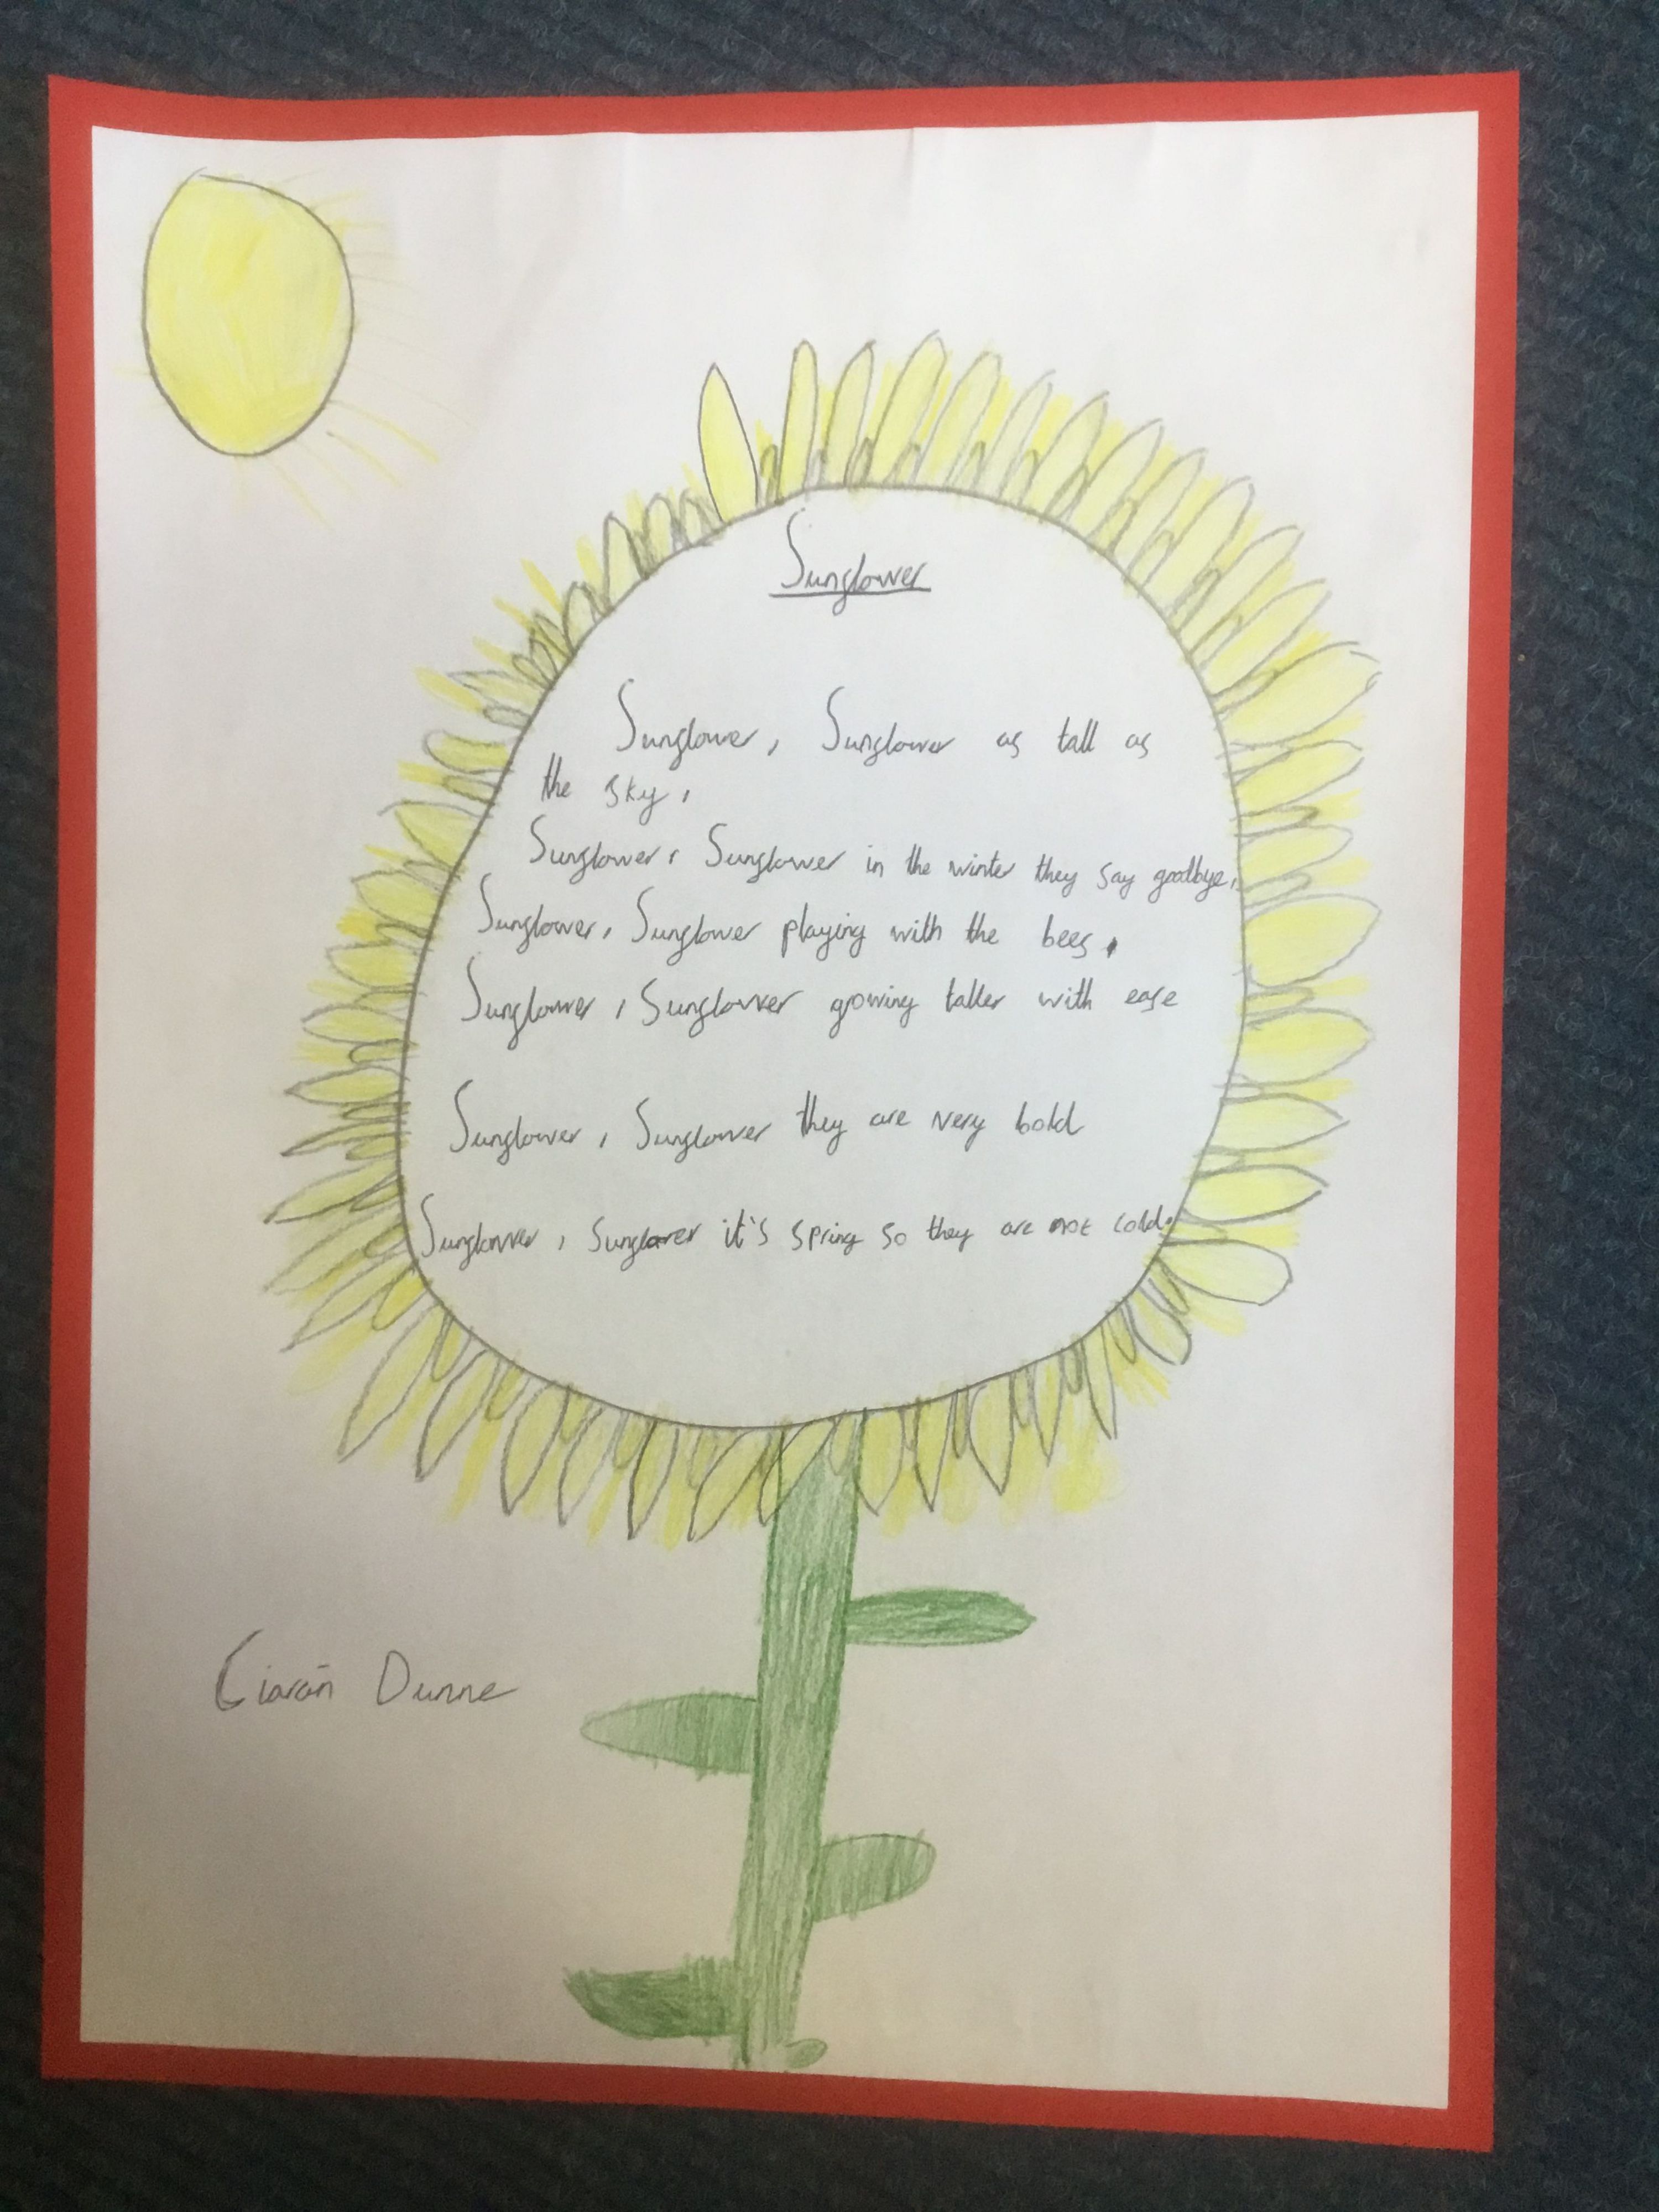 Sunflower
Sunflower, Sunflower as tall as
the sky,
Sunflower, Sunflower in the winter they say goodbye,
Sunflower, Sunflower playing with the bees,
Sunflower, Sunflower growing taller with ease
Sunflower, Sunflower they are very bold
Sunflower, Sunflower it's spring so they are not cold.
Ciarán Dunne